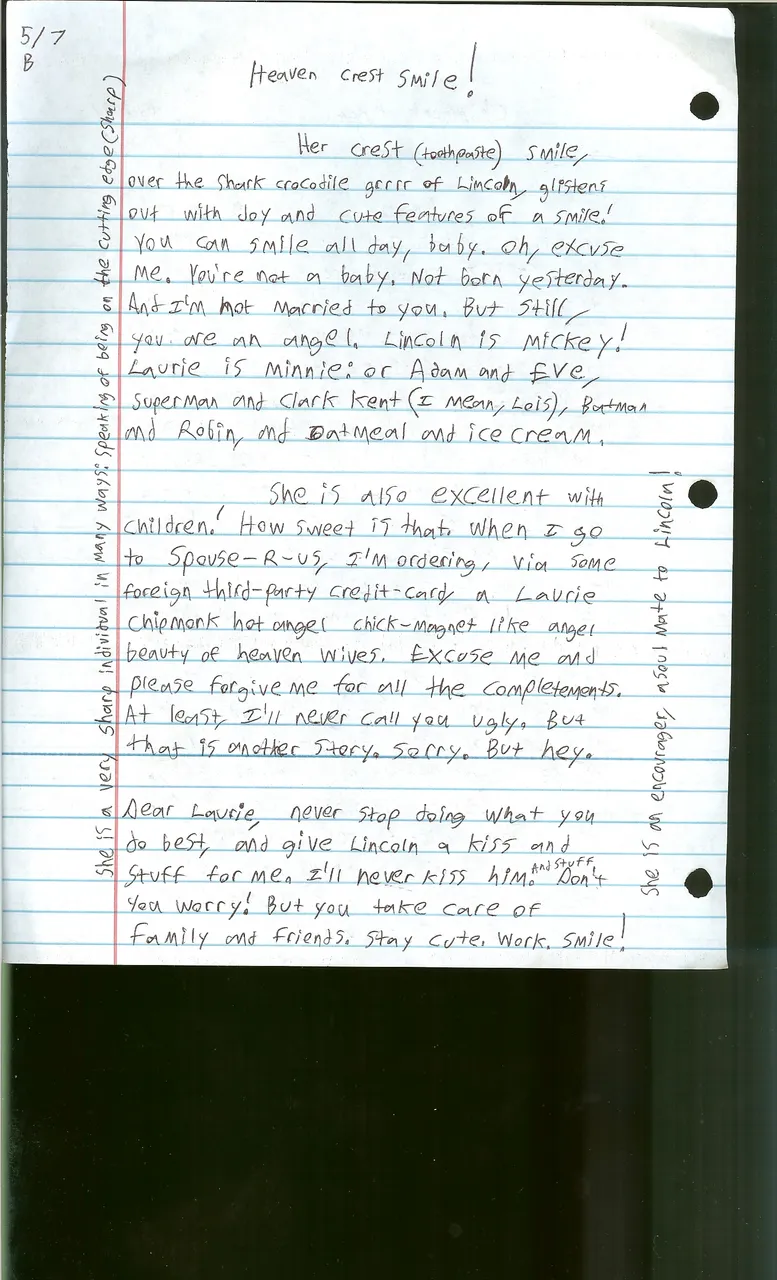 5/7
B
Heaven crest smile!
Her crest (toothpaste) smile,
over the shark crocodile grrrr of Lincoln, glistens
out with Joy and cute features of a smile!
You can smile all day, baby. Oh, excuse
me. You're not a baby. Not born yesterday.
And I'm not married to you. But still,
you are an angel. Lincoln is Mickey!
Laurie is Minnie: or Adam and Eve,
Superman and Clark Kent (I mean, Lois), Batman
and Robin, and Oatmeal and ice cream.
She is also excellent with
children! How sweet is that. When I go
to Spouse-R-us, I'm ordering, via some
foreign third-party credit-card, a Laurie
chipmonk hot angel chick-magnet like angel
beauty of heaven wives. Excuse me and
please forgive me for all the completements.
At least, I'll never call you ugly. But
that is another story. Sorry. But hey.
Dear Laurie, never stop doing what you
do best, and give Lincoln a kiss and
stuff for me. I'll never kiss him. And stuff. Don't
you worry! But you take care of
family and friends. Stay cute. Work. Smile!
She is a very sharp individual in many ways: Speaking of being on the cutting edge (Sharp)
She is an encourager, a soul mate to Lincoln!